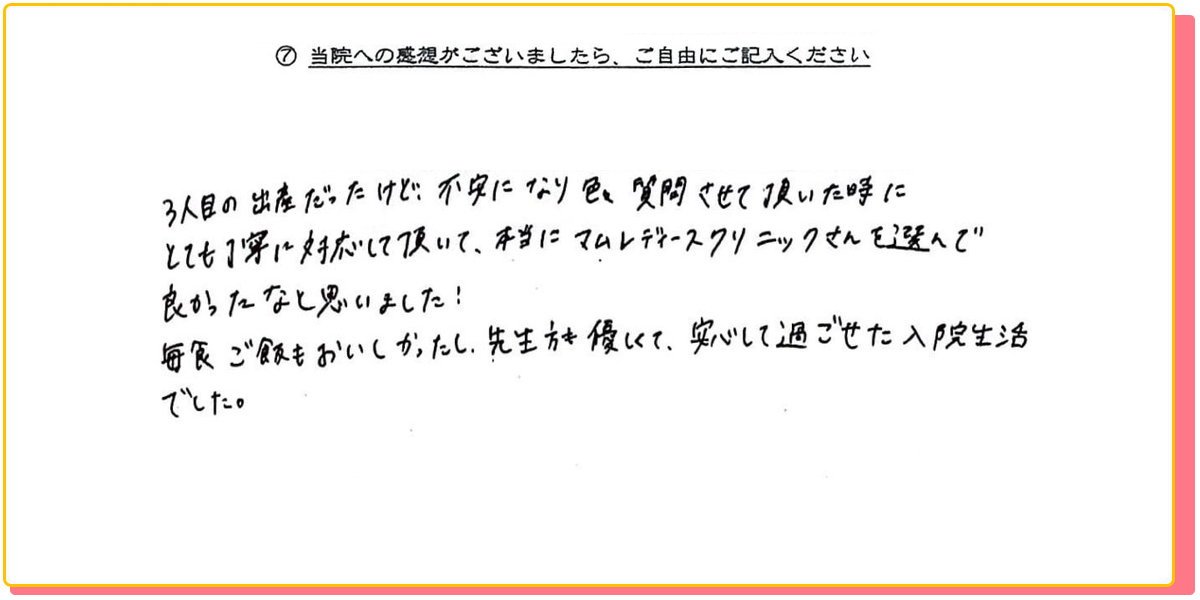 ⑦ 当院への感想がございましたら、ご自由にご記入ください
3人目の出産だったけど、不安になり色々質問させて頂いた時に
とても丁寧に対応して頂いて、本当にマムレディースクリニックさんを選んで
良かったなと思いました!
毎食ご飯もおいしかったし、先生方も優しくて、安心して過ごせた入院生活
でした。